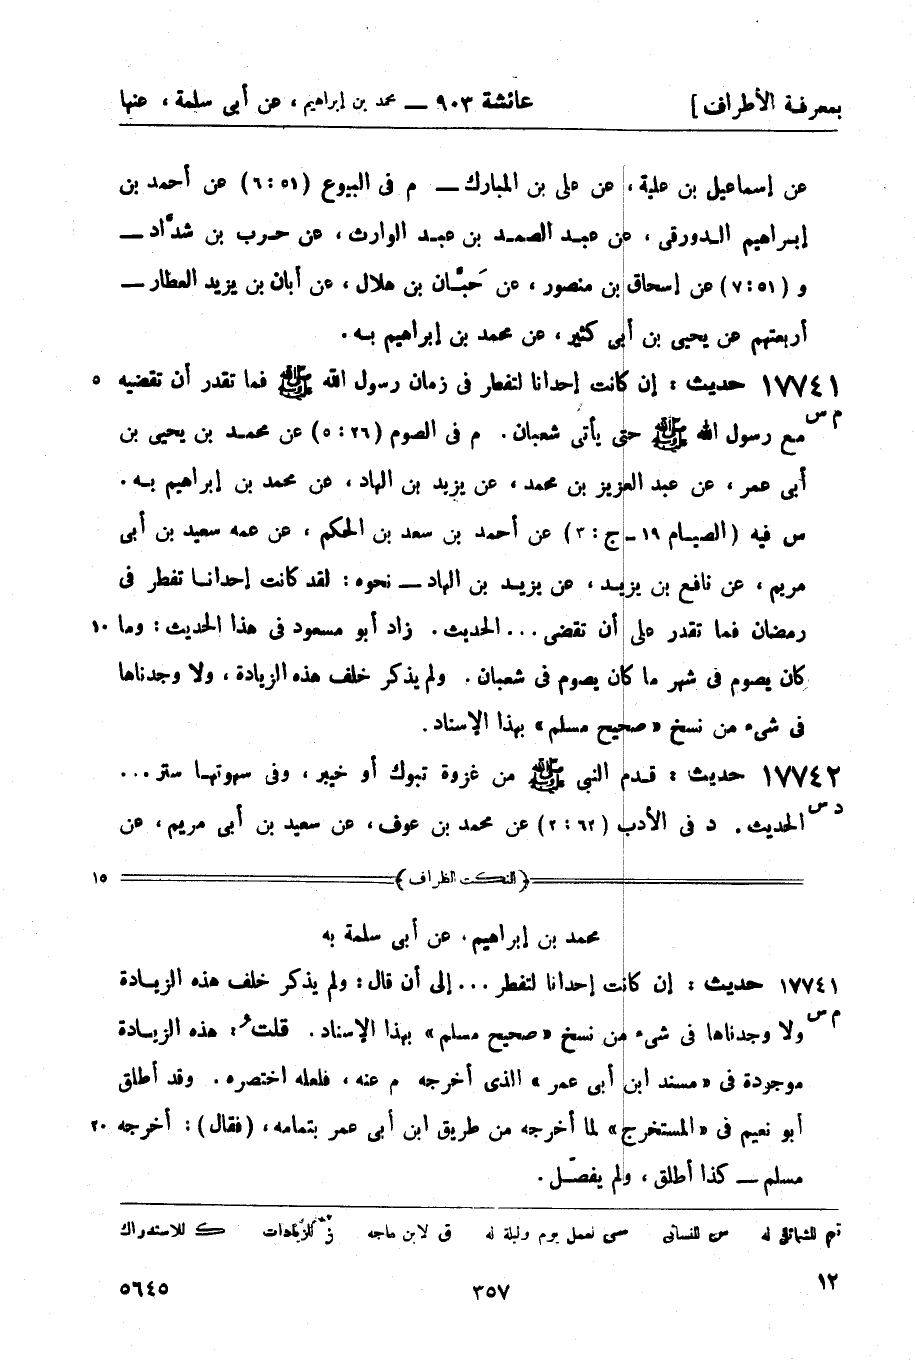 بمعرفة الأطراف] عائشة ٩٠٣ — محمد بن إبراهيم، عن أبى سلمة، عنها
عن إسماعيل بن علية، عن على بن المبارك — م فى البيوع (٦:٥١) عن أحمد بن
إبراهيم الدورقى، عن عبد الصمد بن عبد الوارث، عن حرب بن شدَّاد —
و (٧:٥١) عن إسحاق بن منصور، عن حَبَّان بن هلال، عن أبان بن يزيد العطار —
أربعتهم عن يحيى بن أبى كثير، عن محمد بن إبراهيم به.
١٧٧٤١ حديث: إن كانت إحدانا لتفطر فى زمان رسول الله ﷺ فما تقدر أن تقضيه ٥
م س مع رسول الله ﷺ حتى يأتى شعبان. م فى الصوم (٥:٢٦) عن محمد بن يحيى بن
أبى عمر، عن عبد العزيز بن محمد، عن يزيد بن الهاد، عن محمد بن إبراهيم به.
س فيه (الصيام ١٩ - ج: ٣) عن أحمد بن سعد بن الحكم، عن عمه سعيد بن أبى
مريم، عن نافع بن يزيد، عن يزيد بن الهاد — نحوه: لقد كانت إحدانا تفطر فى
رمضان فما تقدر على أن تقضى... الحديث. زاد أبو مسعود فى هذا الحديث: وما ١٠
كان يصوم فى شهر ما كان يصوم فى شعبان. ولم يذكر خلف هذه الزيادة، ولا وجدناها
فى شىء من نسخ «صحيح مسلم» بهذا الإسناد.
١٧٧٤٢ حديث: قدم النبى ﷺ من غزوة تبوك أو خيبر، وفى سهوتها ستر...
د س الحديث. د فى الأدب (٢:٦٢) عن محمد بن عوف، عن سعيد بن أبى مريم، عن
(النكت الظراف) ١٥
محمد بن إبراهيم، عن أبى سلمة به
١٧٧٤١ حديث: إن كانت إحدانا لتفطر... إلى أن قال: ولم يذكر خلف هذه الزيادة
م س ولا وجدناها فى شىء من نسخ «صحيح مسلم» بهذا الإسناد. قلت: هذه الزيادة
موجودة فى «مسند ابن أبى عمر» الذى أخرجه م عنه، فلعله اختصره. وقد أطلق
أبو نعيم فى «المستخرج» لما أخرجه من طريق ابن أبى عمر بتمامه، (فقال): أخرجه ٢٠
مسلم — كذا أطلق، ولم يفصّل.
تم للشمائل له س للنسائى سى لعمل يوم وليلة له ق لابن ماجه ز للزيادات ك للاستدراك
١٢ ٣٥٧ ٥٦٤٥